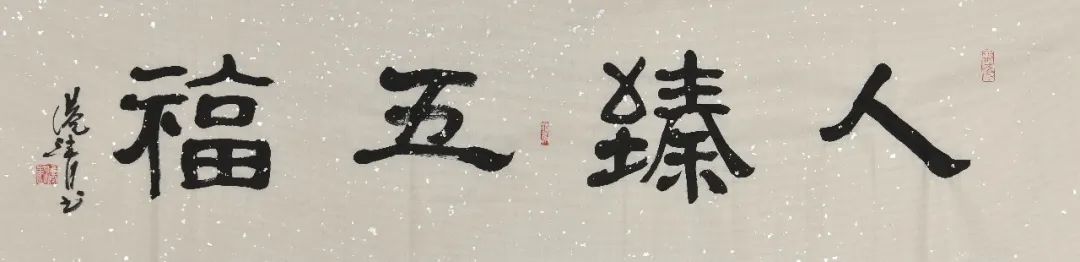 人臻五福